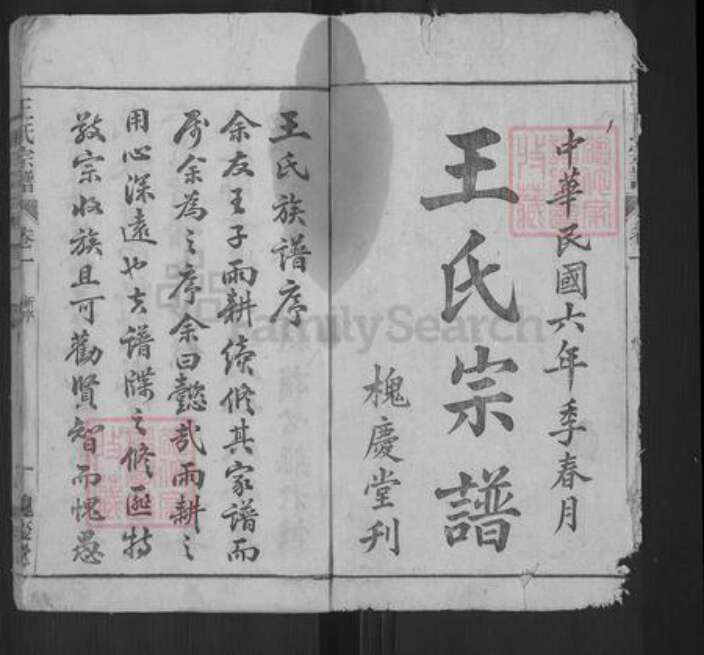 中華民國六年季春月
王氏宗譜
槐慶堂刊
王氏族譜序
余友王子雨耕續修其家譜而
屬余為之序余曰懿哉雨耕之
用心深遠也夫譜牒之修匪特
敬宗收族且可勸賢智而愧愚
王氏宗譜
卷一
槐慶堂
FamilySearch